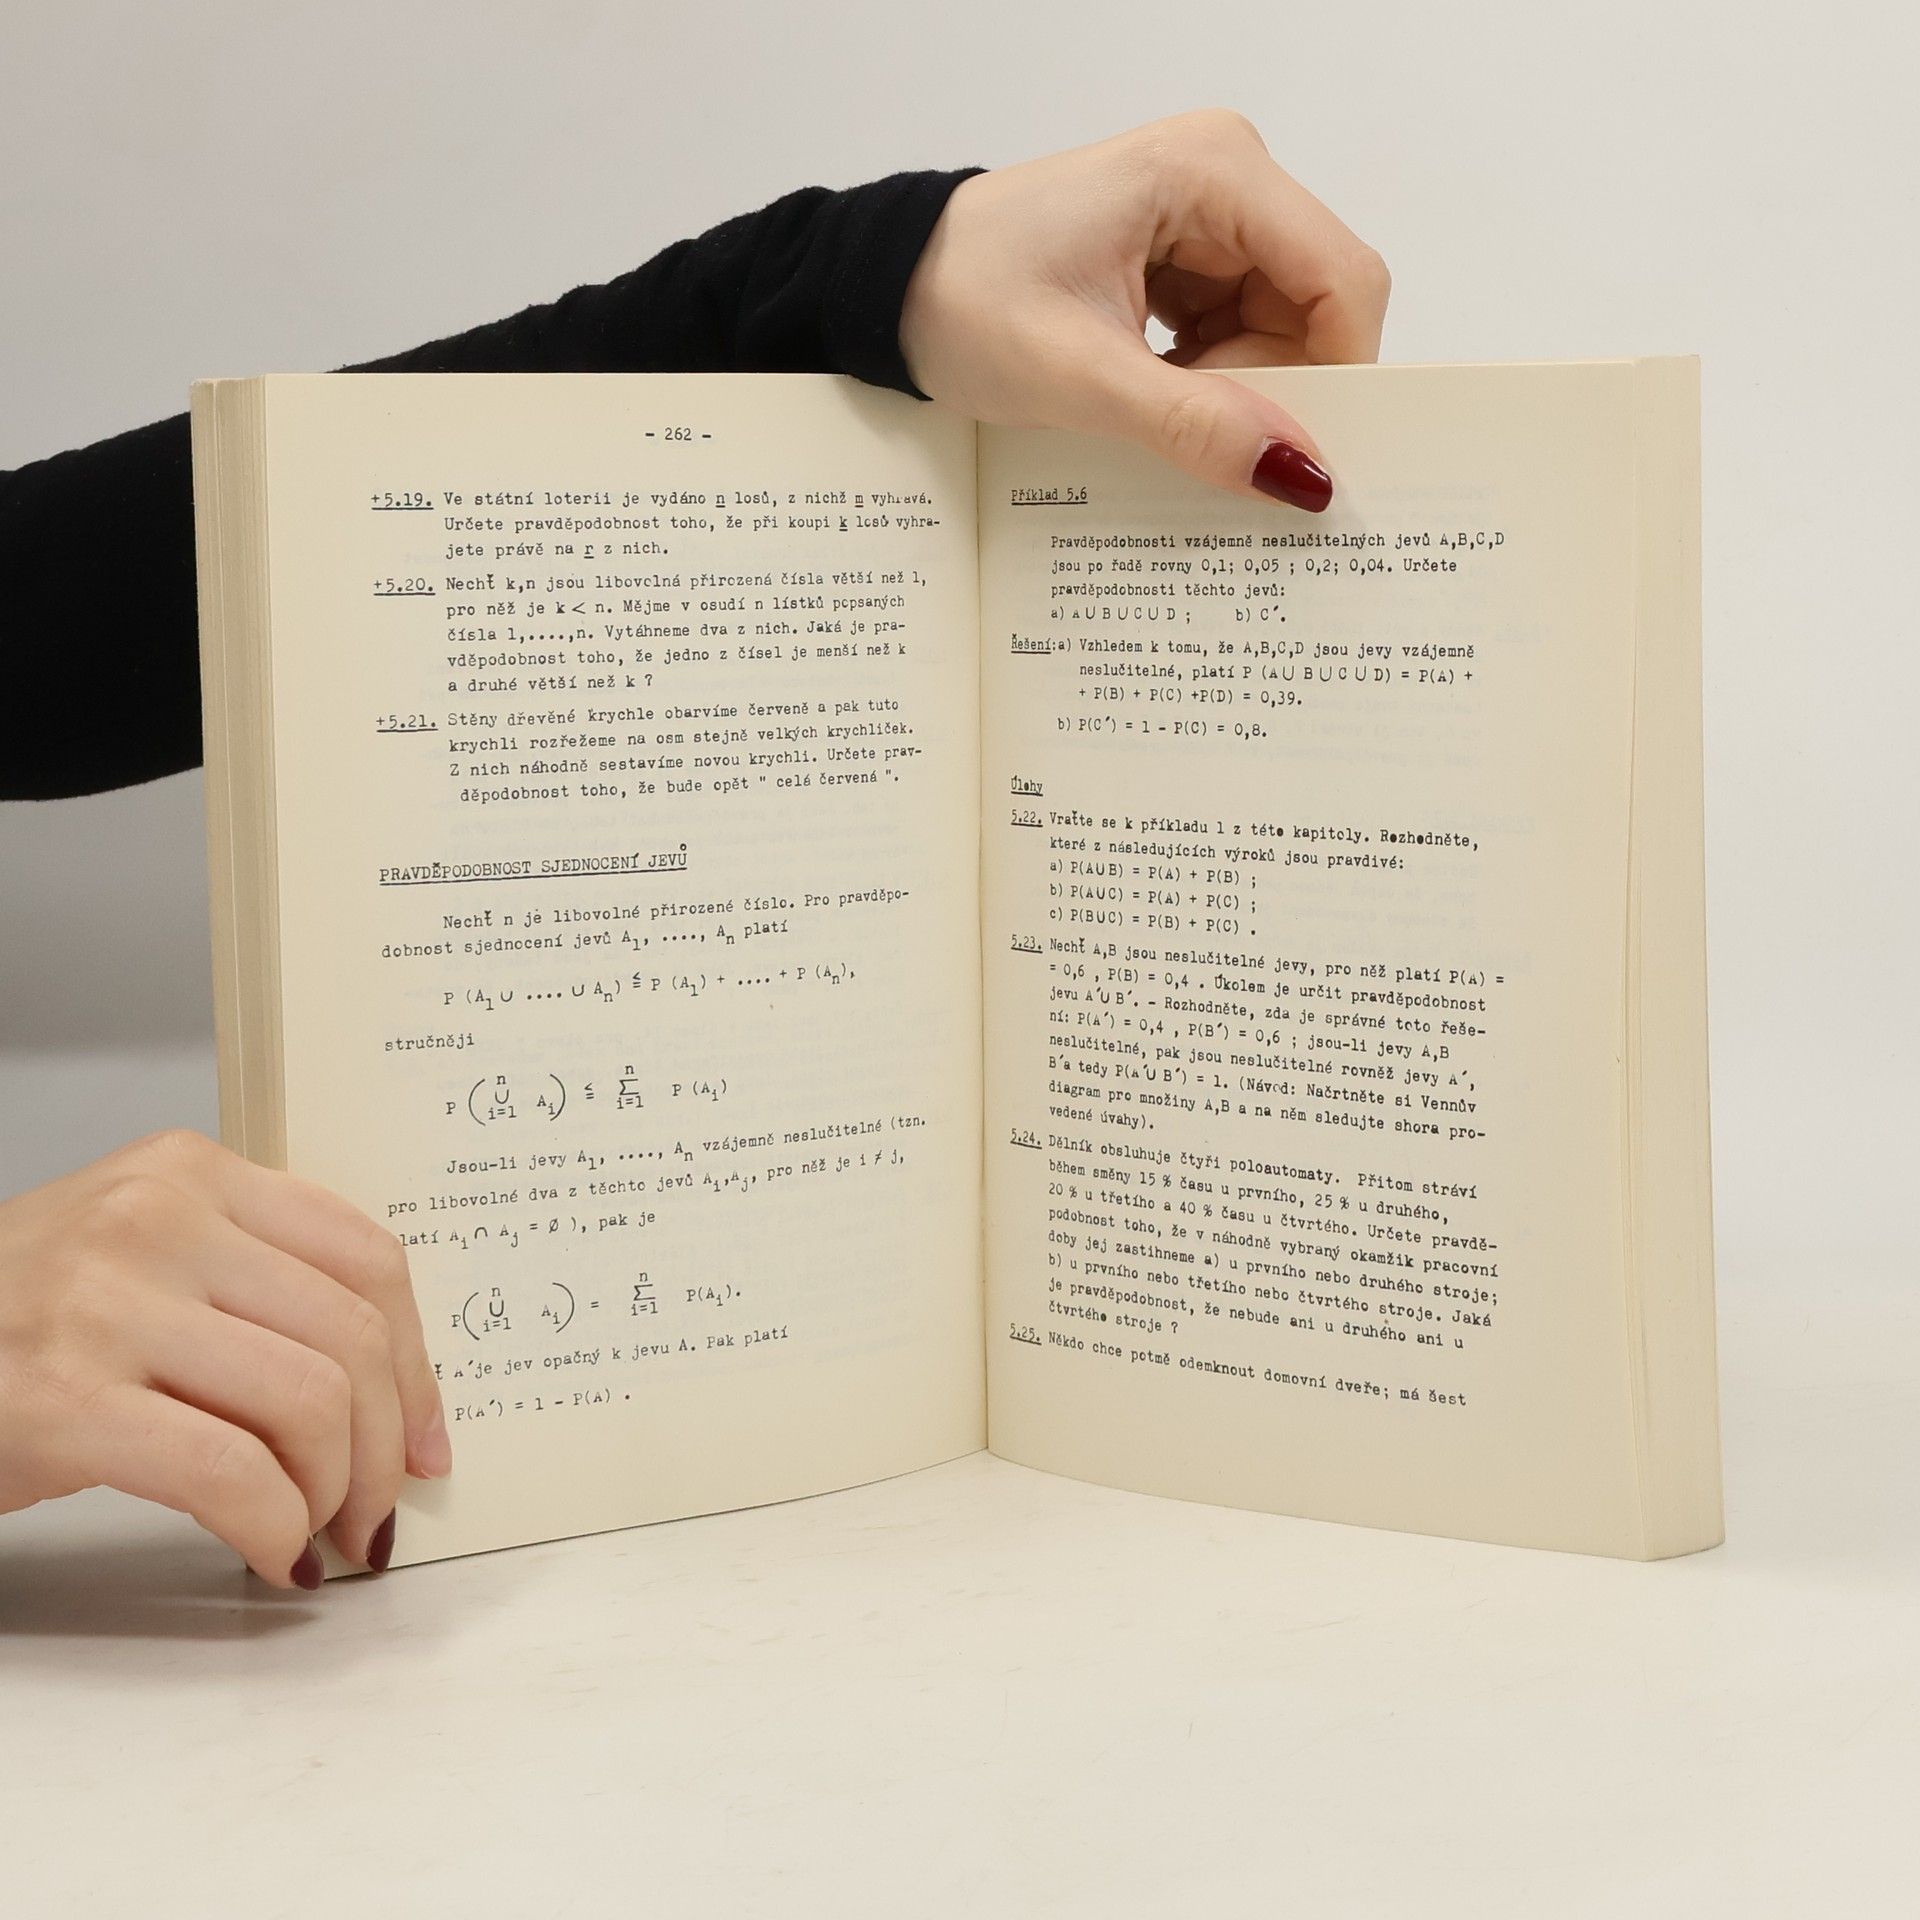 - 262 -
+5.19. Ve státní loterii je vydáno n losů, z nichž m vyhrává.
Určete pravděpodobnost toho, že při koupi k losů vyhra-
jete právě na r z nich.
+5.20. Nechť k,n jsou libovolná přirozená čísla větší než 1,
pro něž je k < n. Mějme v osudí n lístků popsaných
čísla 1,....,n. Vytáhneme dva z nich. Jaká je pra-
vděpodobnost toho, že jedno z čísel je menší než k
a druhé větší než k ?
+5.21. Stěny dřevěné krychle obarvíme červeně a pak tuto
krychli rozřežeme na osm stejně velkých krychliček.
Z nich náhodně sestavíme novou krychli. Určete prav-
děpodobnost toho, že bude opět " celá červená ".
PRAVDĚPODOBNOST SJEDNOCENÍ JEVŮ
Nechť n je libovolné přirozené číslo. Pro pravděpo-
dobnost sjednocení jevů A1, ...., An platí
P (A1 ∪ .... ∪ An) ≦ P (A1) + .... + P (An),
stručněji
P (n∪i=1 Ai) ≦ n∑i=1 P (Ai)
Jsou-li jevy A1, ...., An vzájemně neslučitelné (tzn.
pro libovolné dva z těchto jevů Ai,Aj, pro něž je i ≠ j,
latí Ai ∩ Aj = Ø ), pak je
P(n∪i=1 Ai) = n∑i=1 P(Ai).
ť A´je jev opačný k jevu A. Pak platí
P(A´) = 1 - P(A) .
Příklad 5.6
Pravděpodobnosti vzájemně neslučitelných jevů A,B,C,D
jsou po řadě rovny 0,1; 0,05 ; 0,2; 0,04. Určete
pravděpodobnosti těchto jevů:
a) A∪B∪C∪D ; b) C´.
Řešení:a) Vzhledem k tomu, že A,B,C,D jsou jevy vzájemně
neslučitelné, platí P (A∪B∪C∪D) = P(A) +
+ P(B) + P(C) +P(D) = 0,39.
b) P(C´) = 1 - P(C) = 0,8.
Úlohy
5.22. Vraťte se k příkladu 1 z této kapitoly. Rozhodněte,
které z následujících výroků jsou pravdivé:
a) P(A∪B) = P(A) + P(B) ;
b) P(A∪C) = P(A) + P(C) ;
c) P(B∪C) = P(B) + P(C) .
5.23. Nechť A,B jsou neslučitelné jevy, pro něž platí P(A) =
= 0,6 , P(B) = 0,4 . Úkolem je určit pravděpodobnost
jevu A´∪ B´. - Rozhodněte, zda je správné toto řeše-
ní: P(A´) = 0,4 , P(B´) = 0,6 ; jsou-li jevy A,B
neslučitelné, pak jsou neslučitelné rovněž jevy A´,
B´a tedy P(A´∪ B´) = 1. (Návod: Načrtněte si Vennův
diagram pro množiny A,B a na něm sledujte shora pro-
vedené úvahy).
5.24. Dělník obsluhuje čtyři poloautomaty. Přitom stráví
během směny 15 % času u prvního, 25 % u druhého,
20 % u třetího a 40 % času u čtvrtého. Určete pravdě-
podobnost toho, že v náhodně vybraný okamžik pracovní
doby jej zastihneme a) u prvního nebo druhého stroje;
b) u prvního nebo třetího nebo čtvrtého stroje. Jaká
je pravděpodobnost, že nebude ani u druhého ani u
čtvrtého stroje ?
5.25. Někdo chce potmě odemknout domovní dveře; má šest